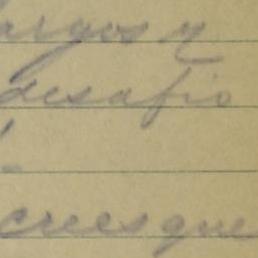 argos y
desafio
crees que